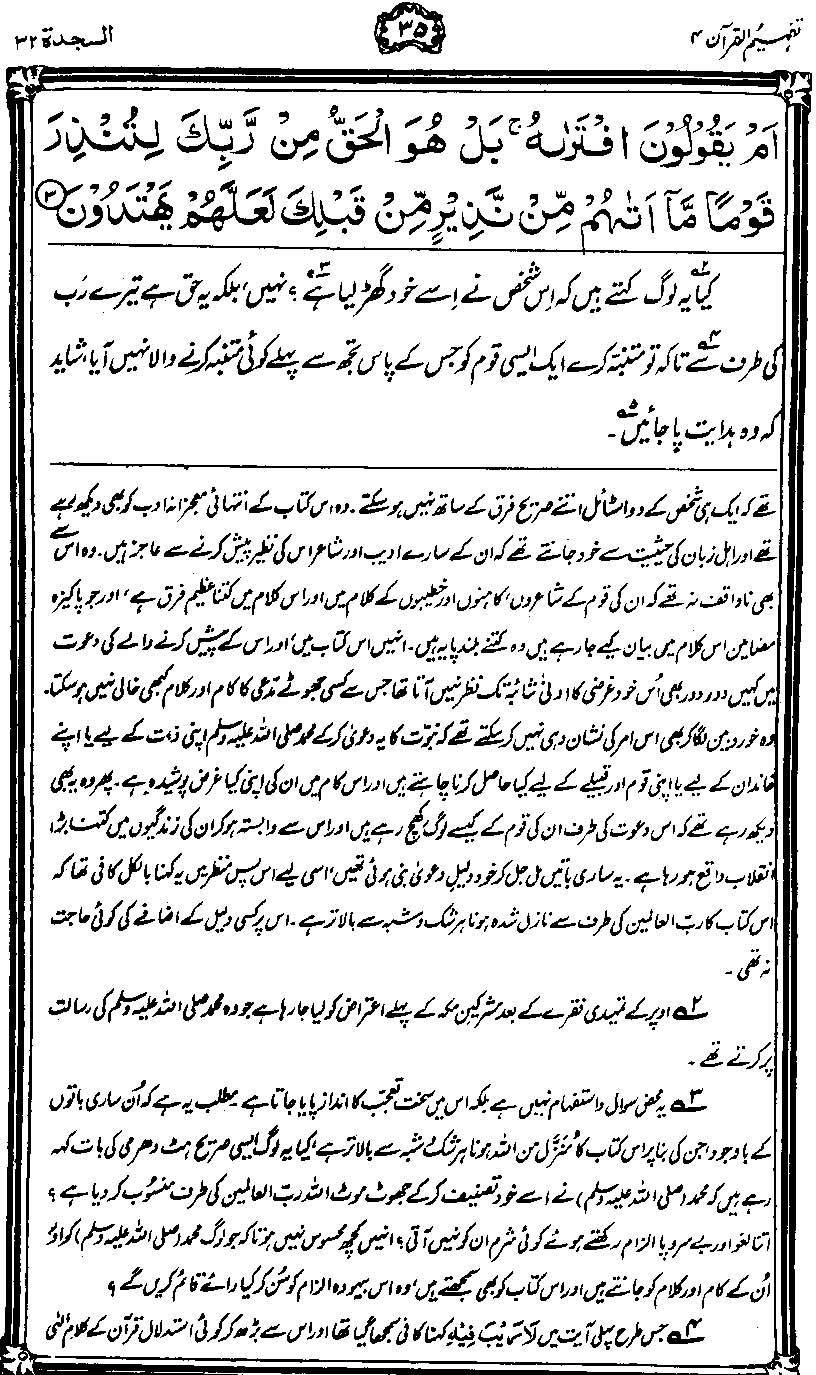 تفہیم القرآن ۴
۳۵
السجدۃ ۳۲
اَمْ يَقُوْلُوْنَ افْتَرٰىهُ ۚ بَلْ هُوَ الْحَقُّ مِنْ رَّبِّكَ لِتُنْذِرَ
قَوْمًا مَّاۤ اَتٰىهُمْ مِّنْ نَّذِيْرٍ مِّنْ قَبْلِكَ لَعَلَّهُمْ يَهْتَدُوْنَ ۳
کیا ۲؎ یہ لوگ کہتے ہیں کہ اِس شخص نے اِسے خود گھڑ لیا ہے ۳؎ ؟ نہیں، بلکہ یہ حق ہے تیرے رب
کی طرف سے ۴؎ تاکہ تو متنبہ کرے ایک ایسی قوم کو جس کے پاس تجھ سے پہلے کوئی متنبہ کرنے والا نہیں آیا، شاید
کہ وہ ہدایت پا جائیں ۵؎ ۔
تھے کہ ایک ہی شخص کے دو اسٹائل اتنے صریح فرق کے ساتھ نہیں ہو سکتے۔ وہ اس کتاب کے انتہائی معجزانہ ادب کو بھی دیکھ رہے
تھے اور اہلِ زبان کی حیثیت سے خود جانتے تھے کہ ان کے سارے ادیب اور شاعر اس کی نظیر پیش کرنے سے عاجز ہیں۔ وہ اس سے
بھی ناواقف نہ تھے کہ ان کی قوم کے شاعروں، کاہنوں اور خطیبوں کے کلام میں اور اس کلام میں کتنا عظیم فرق ہے، اور جو پاکیزہ
مضامین اس کلام میں بیان کیے جا رہے ہیں وہ کتنے بلند پایہ ہیں۔ انہیں اس کتاب میں، اور اس کے پیش کرنے والے کی دعوت
میں کہیں دور دور بھی اُس خود غرضی کا ادنیٰ شائبہ تک نظر نہیں آتا تھا جس سے کسی جھوٹے مدعی کا کام اور کلام کبھی خالی نہیں ہو سکتا۔
وہ خوردبین لگا کر بھی اس امر کی نشان دہی نہیں کر سکتے تھے کہ نبوت کا یہ دعویٰ کر کے محمد صلی اللہ علیہ وسلم اپنی ذات کے لیے یا اپنے
خاندان کے لیے یا اپنی قوم اور قبیلے کے لیے کیا حاصل کرنا چاہتے ہیں اور اس کام میں ان کی اپنی کیا غرض پوشیدہ ہے۔ پھر وہ یہ بھی
دیکھ رہے تھے کہ اس دعوت کی طرف ان کی قوم کے کیسے لوگ کھچ رہے ہیں اور اس سے وابستہ ہو کر ان کی زندگیوں میں کتنا بڑا
انقلاب واقع ہو رہا ہے۔ یہ ساری باتیں مل جل کر خود دلیلِ دعویٰ بنی ہوئی تھیں، اسی لیے اس پس منظر میں یہ کہنا بالکل کافی تھا کہ
اس کتاب کا رب العالمین کی طرف سے نازل شدہ ہونا ہر شک و شبہ سے بالاتر ہے۔ اس پر کسی دلیل کے اضافے کی کوئی حاجت
نہ تھی۔
۲؎ اوپر کے تمہیدی فقرے کے بعد مشرکینِ مکہ کے پہلے اعتراض کو لیا جا رہا ہے جو وہ محمد صلی اللہ علیہ وسلم کی رسالت
پر کرتے تھے۔
۳؎ یہ محض سوال و استفہام نہیں ہے بلکہ اس میں سخت تعجب کا انداز پایا جاتا ہے۔ مطلب یہ ہے کہ اُن ساری باتوں
کے باوجود، جن کی بنا پر اس کتاب کا مُنَزَّل من اللہ ہونا ہر شک و شبہ سے بالاتر ہے، کیا یہ لوگ ایسی صریح ہٹ دھرمی کی بات کہہ
رہے ہیں کہ محمد (صلی اللہ علیہ وسلم) نے اسے خود تصنیف کر کے جھوٹ موٹ اللہ رب العالمین کی طرف منسوب کر دیا ہے؟
اتنا لغو اور بے سروپا الزام رکھتے ہوئے کوئی شرم ان کو نہیں آتی؟ انہیں کچھ محسوس نہیں ہوتا کہ جو لوگ محمد (صلی اللہ علیہ وسلم) کو اور
اُن کے کام اور کلام کو جانتے ہیں اور اس کتاب کو بھی سمجھتے ہیں، وہ اس بیہودہ الزام کو سُن کر کیا رائے قائم کریں گے؟
۴؎ جس طرح پہلی آیت میں لَا رَيْبَ فِيْهِ کہنا کافی سمجھا گیا تھا اور اس سے بڑھ کر کوئی استدلال قرآن کے کلامِ الٰہی